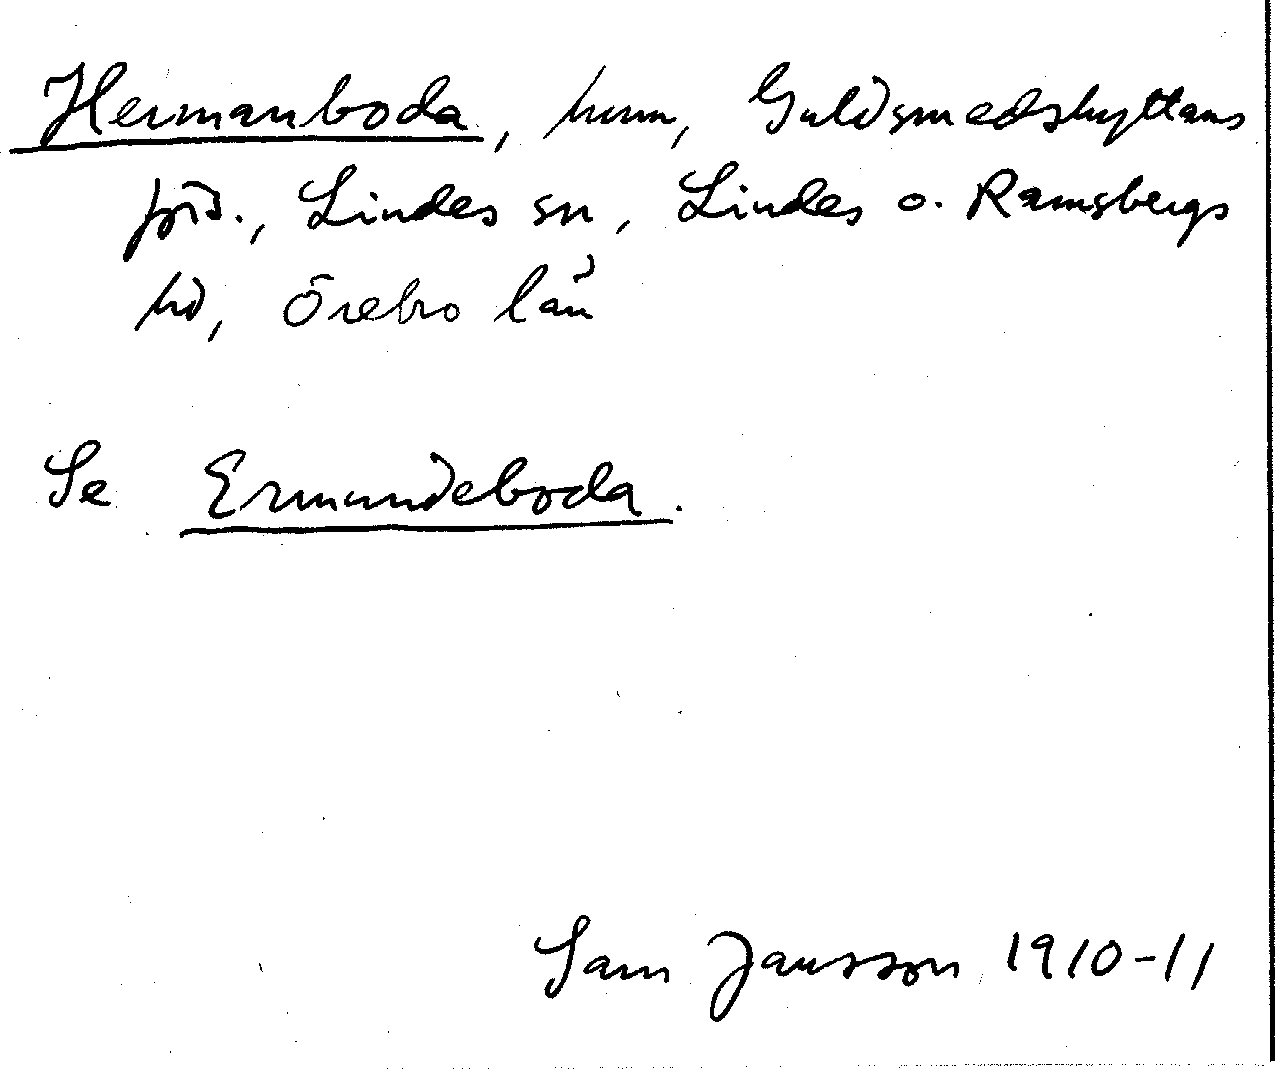 Hermanboda, hmn, Guldsmedshyttans
jprd., Lindes sn, Lindes o. Ramsbergs
hd, Örebro län
Se Ermundeboda.
Sam Jansson 1910-11